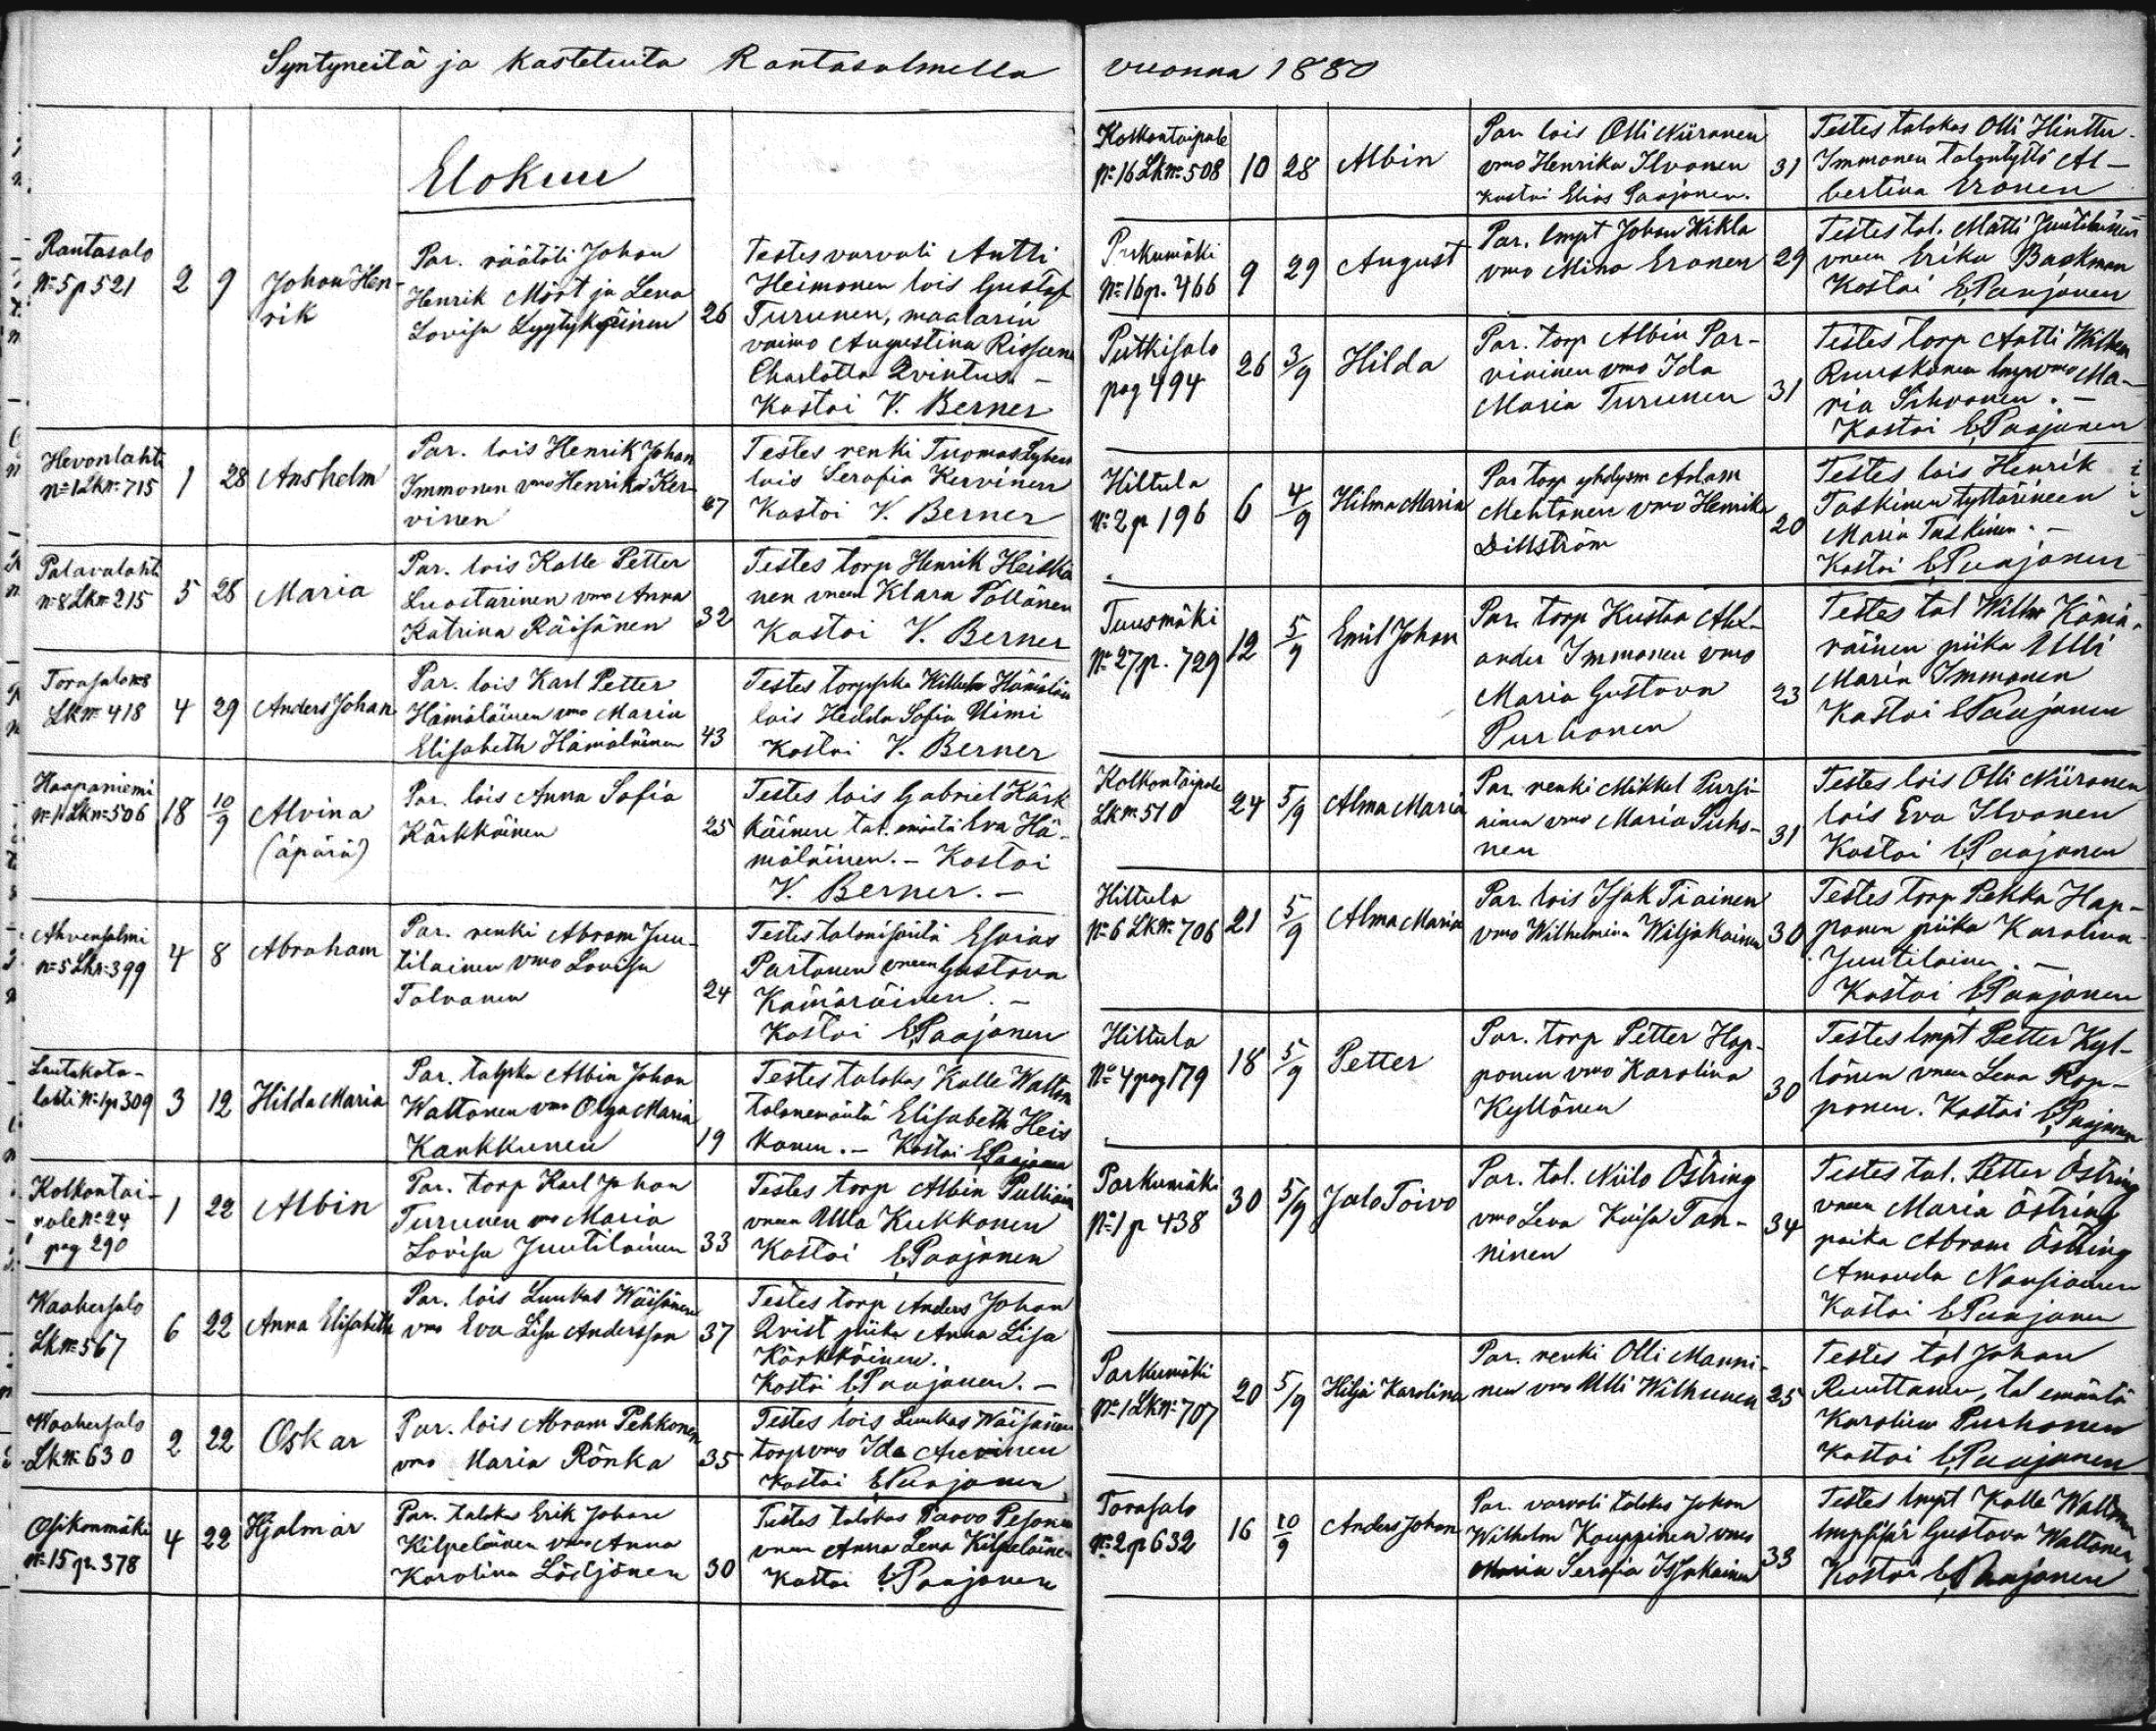 Syntyneitä ja kastetuita Rantasalmella vuonna 1880
Elokuu
Rantasalo
N:o 5 p 521
2
9
Johan Hen-
rik
Par. räätäli Johan
Henrik Möört ja Lena
Lovisa Lyytykäinen
26
Testes varvali Antti
Heimonen lois Gustaf
Turunen, maalarin
vaimo Augustina
Charlotta Qvintus. –
Kastoi V. Berner
Hevonlahti
n:o 1 Lk n:o 715
1
28
Anshelm
Par. lois Henrik Johan
Immonen vmo Henrika Ker-
vinen
67
Testes renki Tuomas
lois Serafia Kervinen
Kastoi V. Berner
Palavalahti
n:o 8 Lk n:o 215
5
28
Maria
Par. lois Kalle Petter
Luostarinen vmo Anna
Katrina Räisänen
32
Testes torp Henrik Heiskä
nen vneen Klara Pöllänen
Kastoi V. Berner
Torasalo n:o 8
Lk n:o 418
4
29
Anders Johan
Par. lois Karl Petter
Hämäläinen vmo Maria
Elisabeth Hämäläinen
43
Testes
lois Hedda Sofia Uimi
Kastoi V. Berner
Haapaniemi
n:o 11 Lk n:o 506
18
10/9
Alvina
(äpärä)
Par. lois Anna Sofia
Kärkkäinen
25
Testes lois Gabriel Kärk
käinen tal. emäntä Eva Hä-
mäläinen. – Kastoi
V. Berner. –
Ahvensalmi
n:o 5 Lk n:o 399
4
8
Abraham
Par. renki Abram Juu-
tilainen vmo Lovisa
Talvanen
24
Testes talonisäntä Esaias
Partanen vneen Gustava
Kämäräinen. –
Kastoi E. Paajanen
Lautakota-
lahti N:o 1 p 309
3
12
Hilda Maria
Par. talpka Albin Johan
Wattanen vmo Olga Maria
Kankkunen
19
Testes talokas Kalle Wattan
talonemäntä Elisabeth Heis
kanen. – Kastoi E. Paajanen
Kolkontai-
pale N:o 24
pag 290
1
22
Albin
Par. torp Karl Johan
Turunen vmo Maria
Lovisa Juutilainen
33
Testes torp Albin Pulliain
vneen Ulla Kukkonen
Kastoi E. Paajanen
Waahersalo
Lk n:o 567
6
22
Anna Elisabeth
Par. lois Luukas Wäisänen
vmo Eva Lisa Andersson
37
Testes torp Anders Johan
Qvist piika Anna Lisa
Kärkkäinen.
Kastoi E. Paajanen. –
Waahersalo
Lk n:o 630
2
22
Oskar
Par. lois Abram Pehkonen
vmo Maria Rönkä
35
Testes lois Luukas Wäisänen
torp vmo Ida Auvinen
Kastoi E. Paajanen
Osikonmäki
N:o 15 p. 378
4
22
Hjalmar
Par. talokas Erik Johan
Kilpeläinen vmo Anna
Karolina Löiljönen
30
Testes talokas Paavo Pesonen
vneen Anna Lena Kilpeläinen
Kastoi E. Paajanen
Kolkontaipale
N:o 16 Lk n:o 508
10
28
Albin
Par. lois Olli Niiranen
vmo Henrika Ilvonen
kastoi Elias Paajanen.
31
Testes talokas Olli Hinttu-
Immonen talontyttö Al-
bertina Eronen
Parkumäki
N:o 16 p. 466
9
29
August
Par. lmpt Johan Kikla
vmo Mina Eronen
29
Testes tal. Matti Juutilainen
vneen Erika Backman
Kastoi E. Paajanen
Putkisalo
pag 494
26
3/9
Hilda
Par. torp Albin Par-
viainen vmo Ida
Maria Turunen
31
Testes torp Antti Wilhem
Ruuskanen lmp vmo Ma-
ria Sihvonen. –
Kastoi E. Paajanen
Hiltula
N:o 2 p 196
6
4/9
Hilma Maria
Par torp yhdysm Adam
Mehtonen vmo Henrika
Dillström
20
Testes lois Henrik
Taskinen tyttärineen
Maria Taskinen. –
Kastoi E. Paajanen
Tuusmäki
N:o 27 p. 729
12
5/9
Emil Johan
Par. torp Kustaa Alex-
ander Immonen vmo
Maria Gustava
Purhonen
23
Testes tal Willm Kämä-
räinen piika Ulli
Maria Immonen
Kastoi E. Paajanen
Kolkontaipale
Lk n:o 510
24
5/9
Alma Maria
Par. renki Mikkel Pursi-
ainen vmo Maria Puho-
nen
31
Testes lois Olli Niiranen
lois Eva Ilvonen
Kastoi E. Paajanen
Hiltula
N:o 6 Lk n:o 706
21
5/9
Alma Maria
Par. lois Isak Tiainen
vmo Wilhelmina Wiljakainen
30
Testes torp Pekka Hap-
ponen piika Karolina
Juutilainen. –
Kastoi E. Paajanen
Hiltula
N:o 4 pag 179
18
5/9
Petter
Par. torp Petter Hap-
ponen vmo Karolina
Kyllönen
30
Testes lmpt Petter Kyl-
lönen vneen Lena Rop-
ponen. Kastoi E. Paajanen
Parkumäki
N:o 1 p 438
30
5/9
Jalo Toivo
Par. tal. Niilo Östring
vmo Leva Kaisa Tan-
ninen
34
Testes tal. Petter Östring
vneen Maria Östring
poika Abram Östring
Amanda Nousiainen
Kastoi E. Paajanen
Parkumäki
N:o 1 Lk n:o 707
20
5/9
Hilja Karolina
Par. renki Olli Manni-
nen vmo Ulli Wilhunen
25
Testes tal Johan
Ruuttanen, tal emäntä
Karolina Purhonen
Kastoi E. Paajanen
Torasalo
N:o 2 p 632
16
10/9
Anders Johan
Par. varvali talokas Johan
Wilhelm Kauppinen vmo
Maria Serafia Issakainen
33
Testes lmpt Kalle Wattanen
Gustava Wattanen
Kastoi E. Paajanen